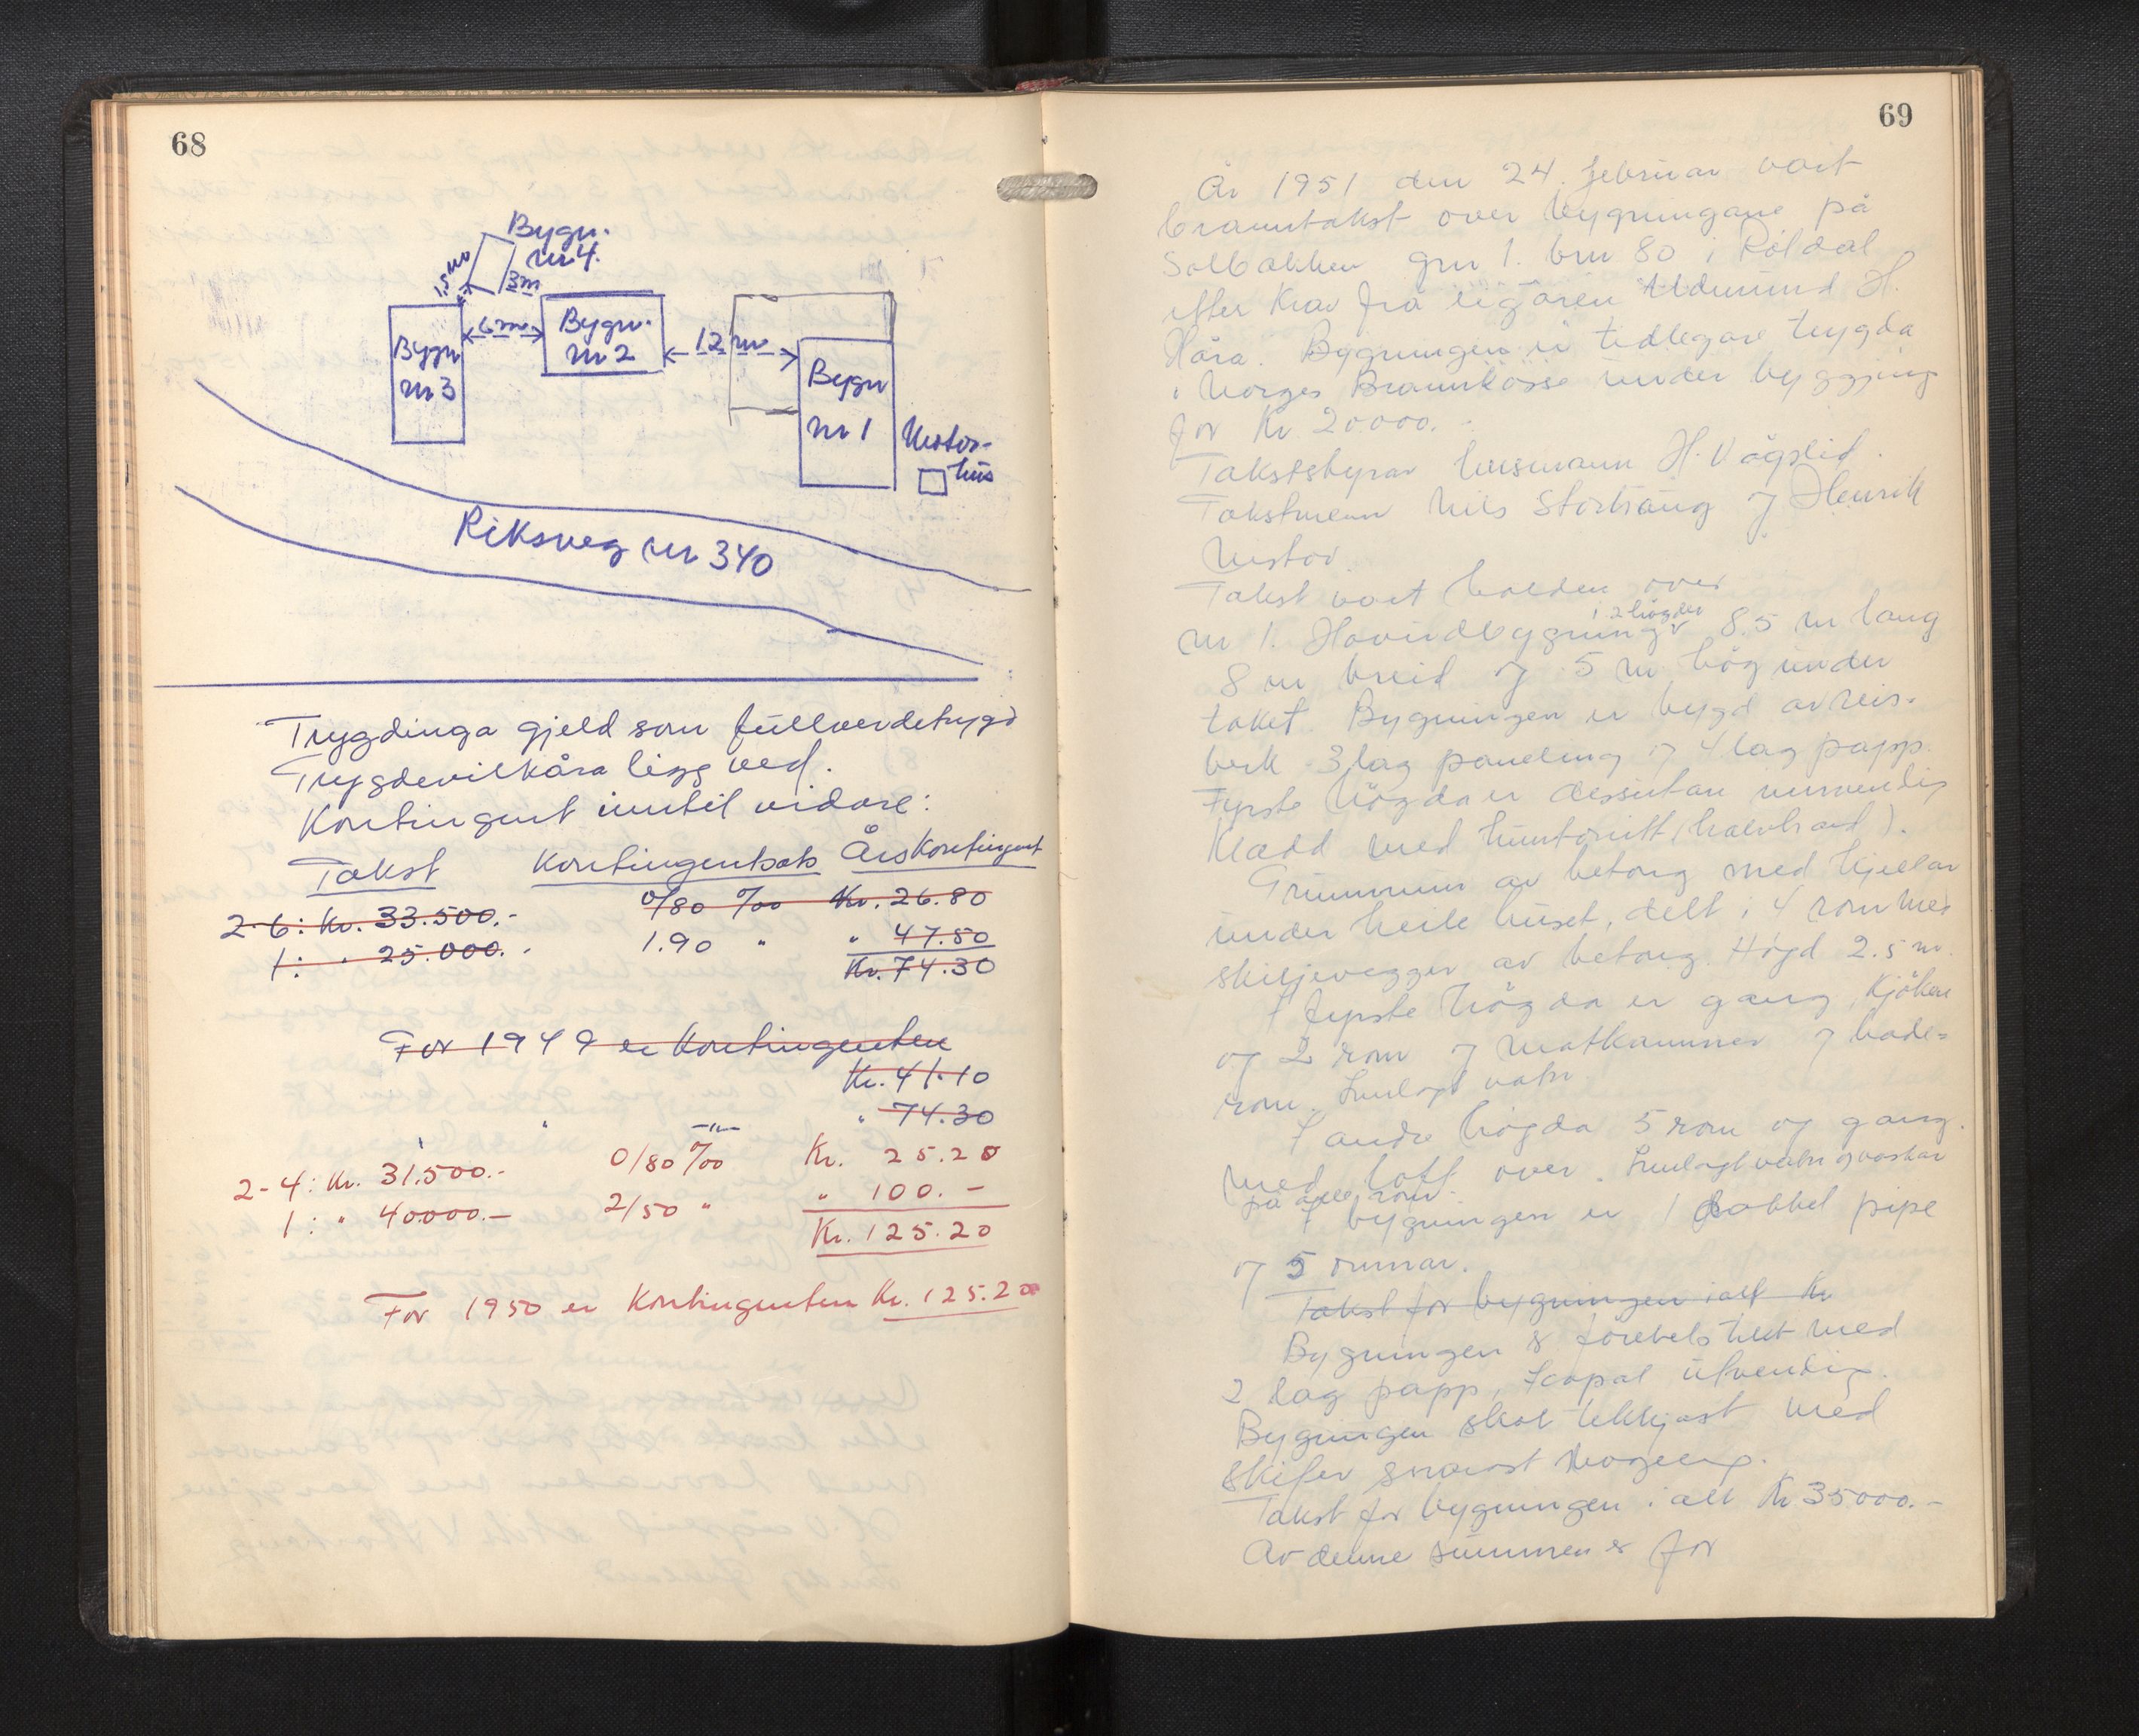 68
Bygn.
nr 4.
1,5 m
3m
6 m
Bygn.
nr 2
12 m
Bygn
nr 3
Bygn
nr 1
Nistov-
hus
Riksveg nr 340
Trygdinga gjeld som fullverdetrygd
Trygdevilkåra ligg ved.
Kontingent inntil vidare:
Takst Kontingentsats Årskontingent
2-6: Kr. 33.500.- 0/80 ‰ Kr. 26.80
1: " 25.000.- 1.90 " " 47.50
Kr. 74.30
For 1949 er Kontingenten
Kr. 41.10
" 74.30
2-4: Kr. 31.500.- 0/80 ‰ Kr. 25.20
1: " 40000.- 2/50 " " 100.-
Kr. 125.20
For 1950 er Kontingenten Kr. 125.20
69
År 1951 den 24. februar vart
branntakst over bygningane på
Solbakken gnr 1. bnr 80 i Röldal
etter Krav frå eigaren Admund H.
Håra. Bygningen er tidlegare trygda
i Norges Brannkasse under bygging
for Kr 20000.-
Takststyrar lensmann H. Vågslid.
Takstmenn Nils Stortraug og Henrik
Nistov.
Takst vart halden over
nr 1. Hovudbygning i 2 högder 8.5 m lang
8 m breid og 5 m hög under
taket. Bygningen er bygd av reis-
verk 3 lag paneling og 4 lag papp.
Fyrste högda er dessutan innvendig
Kledd med huntonitt (halvhard).
Grunnmur av betong med kjellar
under heile huset, delt i 4 rom med
skiljevegger av betong. Högd 2.5 m.
I fyrste högda er gang, Kjöken
og 2 rom og matkammer og bade-
rom. Innlagt vatn
I andre högda 5 rom og gang.
med loft over. Innlagt vatn og vaskar
på alle rom.
I bygningen er 1 dobbel pipe
og 5 omnar.
Takst for bygningen ialt Kr
Bygningen er förebels tekt med
2 lag papp, Icopal utvendig.
Bygningen skal tekkjast med
skifer snarast mogeleg.
Takst for bygningen i alt Kr 35000.-
Av denne summen er for